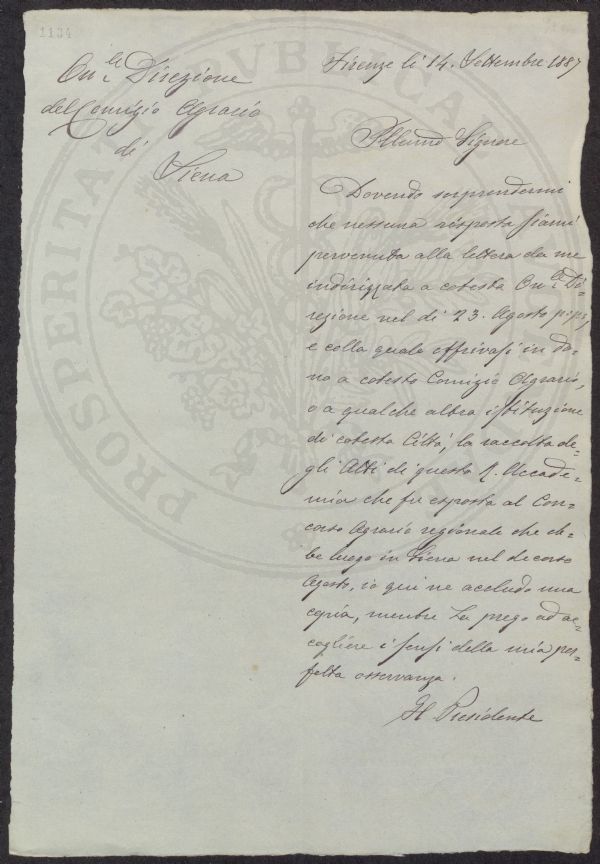 1134
Firenze li 14. Settembre 1887
On.le Direzione
del Comizio Agrario
di
Siena
Illmo Signore
Dovendo sorprendermi
che nessuna risposta siami
pervenuta alla lettera da me
indirizzata a cotesta On.le Di-
rezione nel dì 23. Agosto p.p.,
e colla quale offrivasi in do-
no a cotesto Comizio Agrario,
o a qualche altra istituzione
di cotesta Città, la raccolta de-
gli Atti di questa R. Accade-
mia che fu esposta al Con-
corso Agrario regionale che eb-
be luogo in Siena nel decorso
Agosto, io qui ne accludo una
copia, mentre La prego ad ac-
cogliere i sensi della mia per-
fetta osservanza.
Il Presidente
PROSPERITATI PVBLICAE